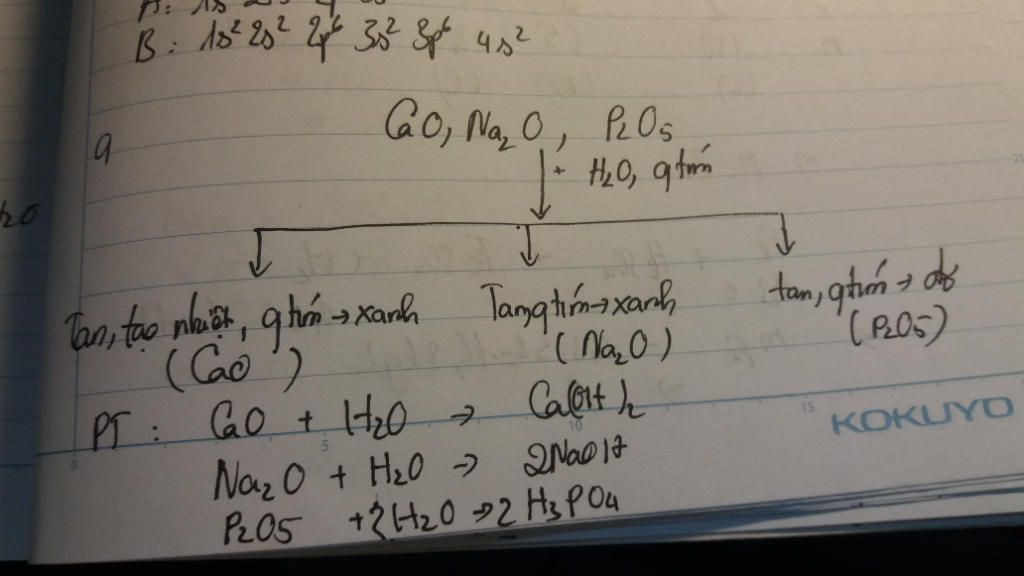 B: 1s² 2s² 2p⁶ 3s² 3p⁶ 4s²
a
CaO, Na₂O, P₂O₅
+ H₂O, q tím
Tan, tạo nhiệt, q tím → xanh
(CaO)
Tan, q tím → xanh
(Na₂O)
tan, q tím → đỏ
(P₂O₅)
PT: CaO + H₂O → Ca(OH)₂
Na₂O + H₂O → 2NaOH
P₂O₅ + 3H₂O → 2H₃PO₄
5
10
15
0
KOKUYO